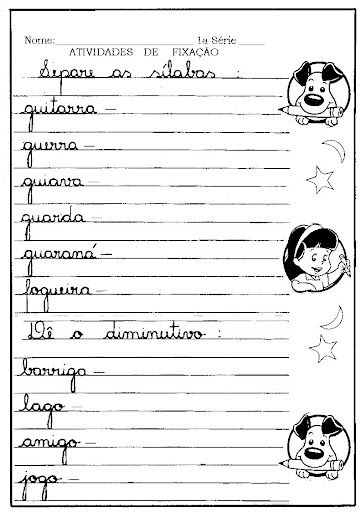 Nome: 1a Série
ATIVIDADES DE FIXAÇÃO
Separe as sílabas :
guitarra –
guerra –
guiava –
guarda –
guaraná –
fogueira –
Dê o diminutivo :
barriga –
lago –
amigo –
jogo –